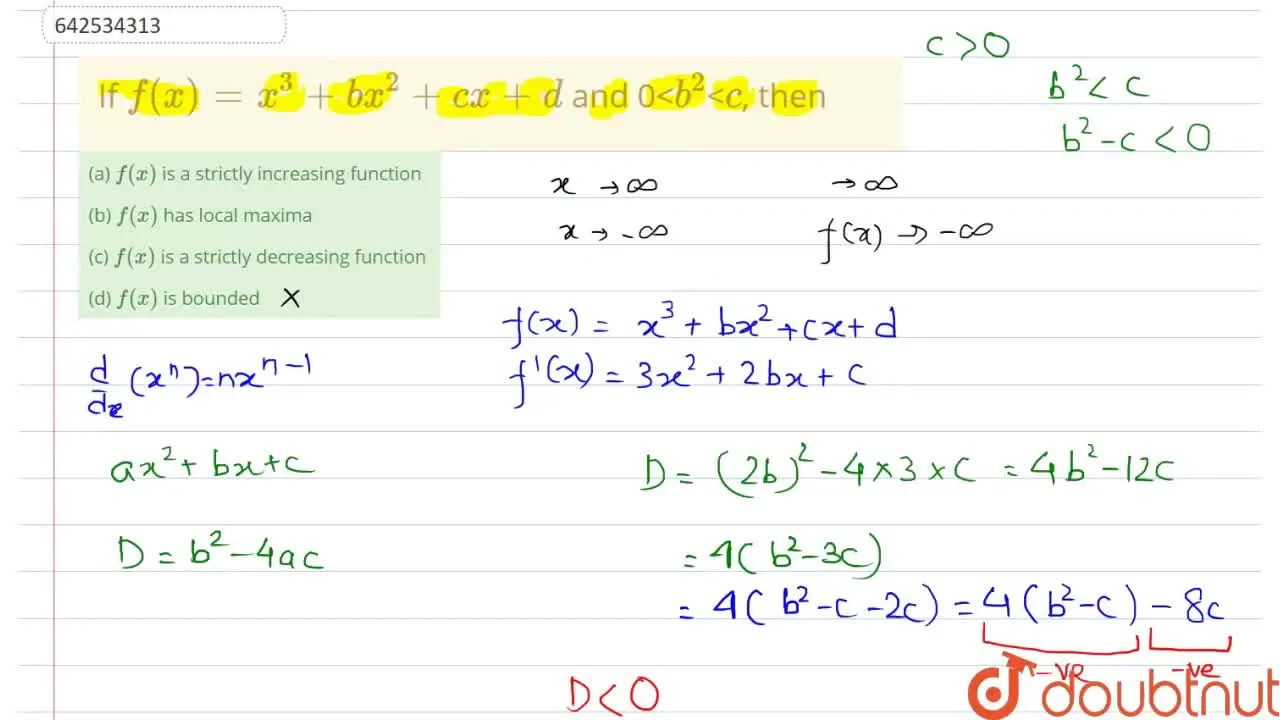 642534313
If f(x) = x³ + bx² + cx + d and 0<b²<c, then
(a) f(x) is a strictly increasing function
(b) f(x) has local maxima
(c) f(x) is a strictly decreasing function
(d) f(x) is bounded ×
c > 0
b² < c
b² - c < 0
x → ∞ → ∞
x → -∞ f(x) → -∞
f(x) = x³ + bx² + cx + d
f'(x) = 3x² + 2bx + c
d/dx (xⁿ) = nxⁿ⁻¹
ax² + bx + c
D = b² - 4ac
D = (2b)² - 4 × 3 × c = 4b² - 12c
= 4(b² - 3c)
= 4(b² - c - 2c) = 4(b² - c) - 8c
-ve -ve
D < 0
doubtnut